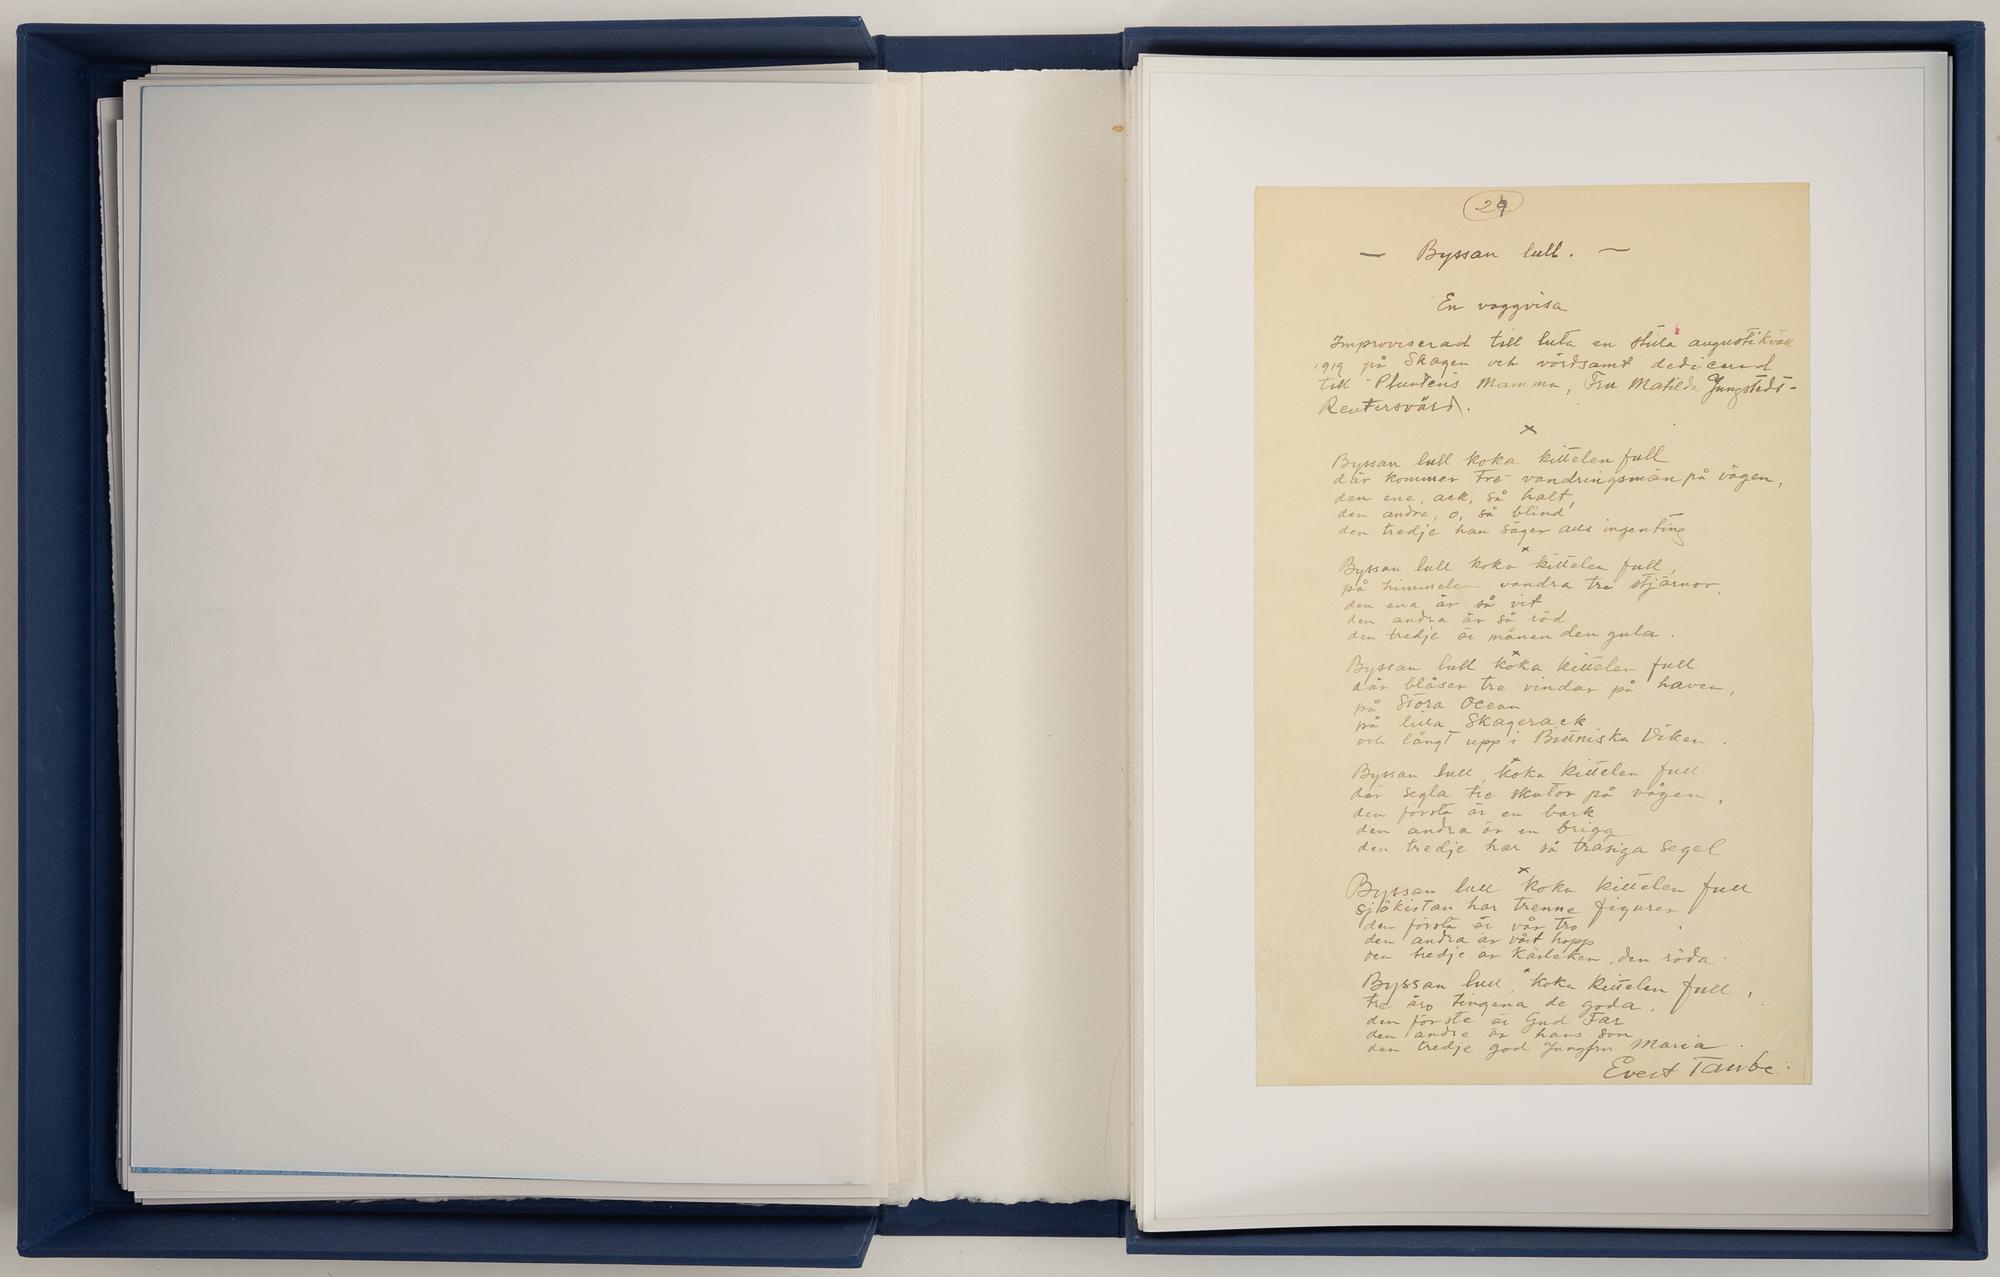 — Byssan lull. —
En vaggvisa
Improviserad till luta en stilla augustikväll
1919 på Skagen och vördsamt dedicerad
till Pluntens Mamma, Fru Matilda Jungstedt-
Reutersvärd.
x
Byssan lull koka kittelen full
där kommer tre vandringsmän på vägen,
den ene, ack, så halt,
den andre, o, så blind,
den tredje han säger alls ingenting
x
Byssan lull koka kittelen full,
på himmelen vandra tre stjärnor,
den ena är så vit
den andra är så röd
den tredje är månen den gula.
x
Byssan lull koka kittelen full
där blåser tre vindar på haven,
på Stora Ocean
på lilla Skagerack
och långt upp i Bottniska Viken.
x
Byssan lull, koka kittelen full
där segla tre skutor på vågen,
den första är en bark
den andra är en brigg
den tredje har så trasiga segel
x
Byssan lull koka kittelen full
sjökistan har trenne figurer
den första är vår tro
den andra är vårt hopp
den tredje är Kärleken, den röda.
x
Byssan lull, koka kittelen full,
tre äro tingena de goda,
den förste är Gud Far
den andre är hans son
den tredje god Jungfru Maria.
Evert Taube.